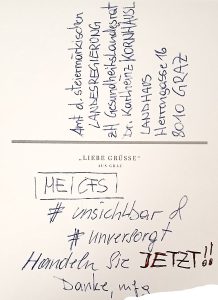 Amt d. steiermärkischen
LANDESREGIERUNG
zH Gesundheitslandesrat
Dr. Karlheinz KORNHÄUSL
LANDHAUS
Herrengasse 16
8010 GRAZ
„LIEBE GRÜSSE“
AUS GRAZ
ME/CFS
# unsichtbar &
# unversorgt
Handeln Sie JETZT!!
Danke, mfg